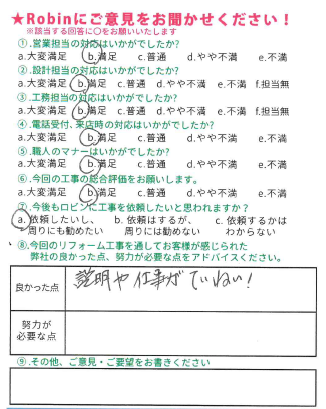 ★Robinにご意見をお聞かせください！
※該当する回答に○をお願いいたします
①.営業担当の対応はいかがでしたか?
a.大変満足 b.満足 c.普通 d.やや不満 e.不満
②.設計担当の対応はいかがでしたか?
a.大変満足 b.満足 c.普通 d.やや不満 e.不満 f.担当無
③.工務担当の対応はいかがでしたか?
a.大変満足 b.満足 c.普通 d.やや不満 e.不満 f.担当無
④.電話受付、来店時の対応はいかがでしたか?
a.大変満足 b.満足 c.普通 d.やや不満 e.不満
⑤.職人のマナーはいかがでしたか?
a.大変満足 b.満足 c.普通 d.やや不満 e.不満
⑥.今回の工事の総合評価をお願いします。
a.大変満足 b.満足 c.普通 d.やや不満 e.不満
⑦.今後もロビンに工事を依頼したいと思われますか?
a.依頼したいし、 b.依頼はするが、 c.依頼するかは
周りにも勧めたい 周りには勧めない わからない
⑧.今回のリフォーム工事を通してお客様が感じられた
弊社の良かった点、努力が必要な点をアドバイスください。
良かった点 説明や仕事がていねい！
努力が
必要な点
⑨.その他、ご意見・ご要望をお書きください